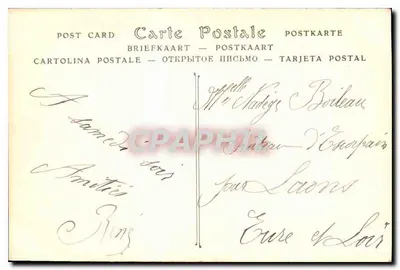 POST CARD Carte Postale POSTKARTE
BRIEFKAART — POSTKAART
CARTOLINA POSTALE — ОТКРЫТОЕ ПИСЬМО — TARJETA POSTAL
A samedi soir
Amitiés
René
CPARAMA
Melle Nadège Boileau
d'Escorpain
par Laons
Eure et Loir